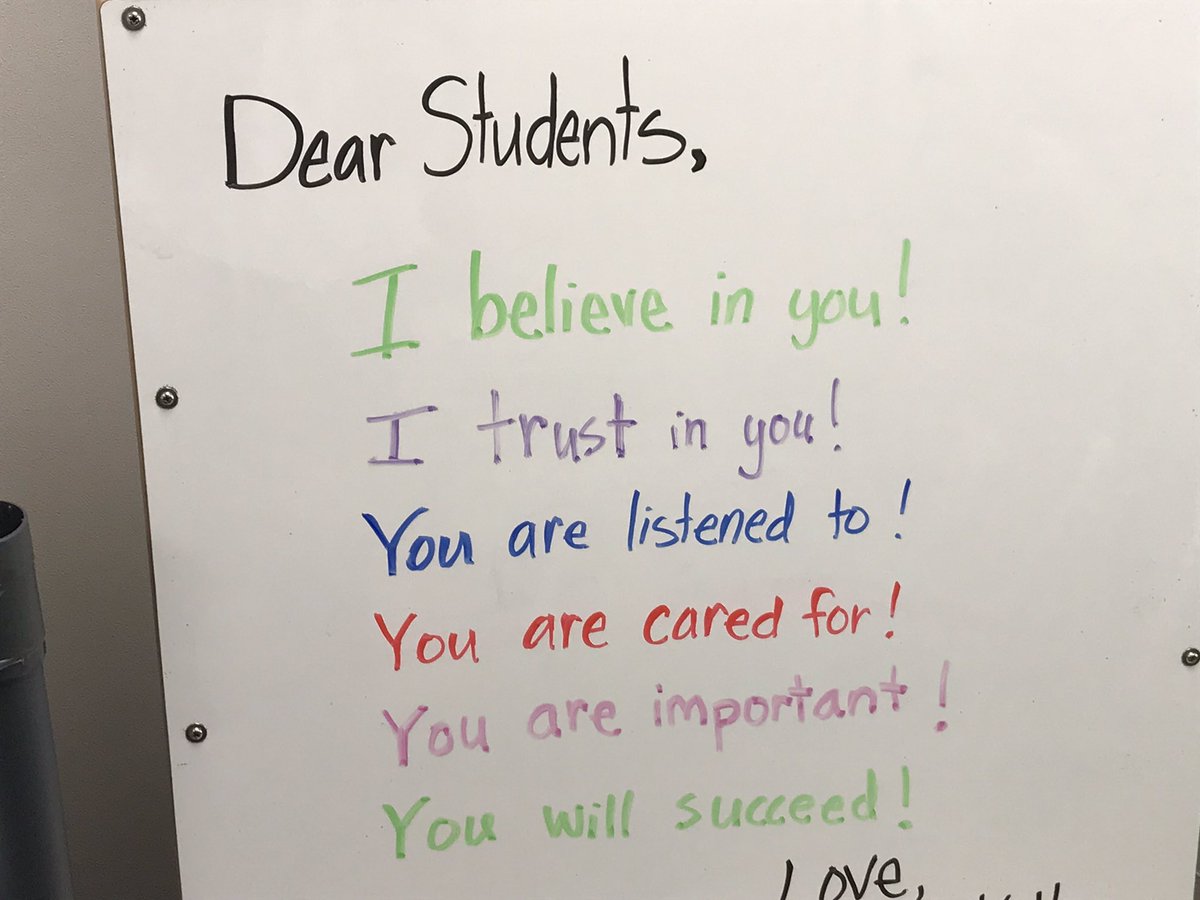 Dear Students,
I believe in you!
I trust in you!
You are listened to!
You are cared for!
You are important!
You will succeed!
Love,